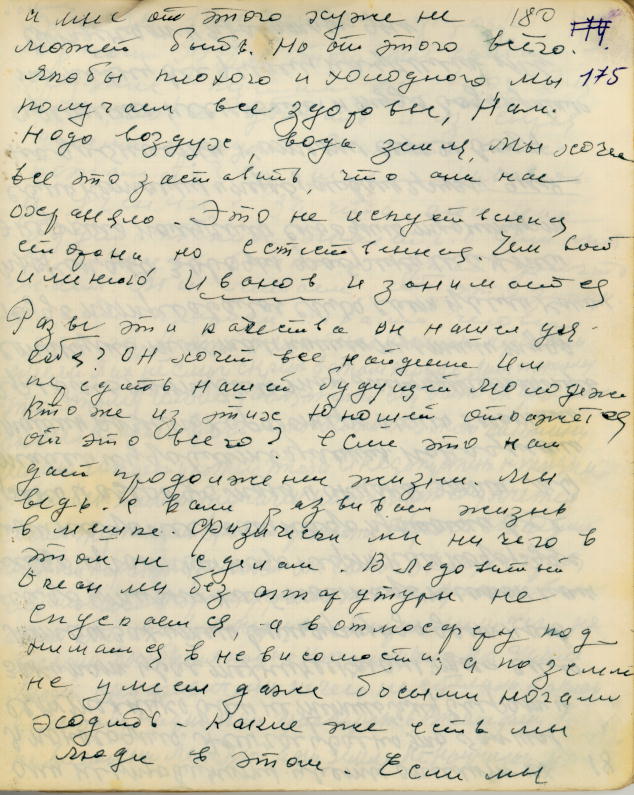 а мне от этого хуже не 180
может быть. Но от этого всего. 174
якобы плохого и холодного мы 175
получаем все здоровье, Нам.
Надо воздух, вода земля, мы хочем
все это заставить, что она нас
охраняло. Это не искуственная
сторона но естественная. Чем вот
и именно Иванов и занимается
Разве эти качества он нашел для
себя? ОН хочет все найденне Им
передать нашей будущей молодежи
Кто же из этих юношей откажется
от это всего? если это нам
даст продолжении жизни. Мы
ведь с вами развиваем жизнь
в мешке. Физически мы ни чего в
этом не сделали. В Ледовитый
Океан мы без аппаратуры не
спускаемся, а в атмосферу под
нимаемся в невисомости, а по земли
не умеем даже босыми ногами
ходить - какие же есть мы
люди в этом. Если мы